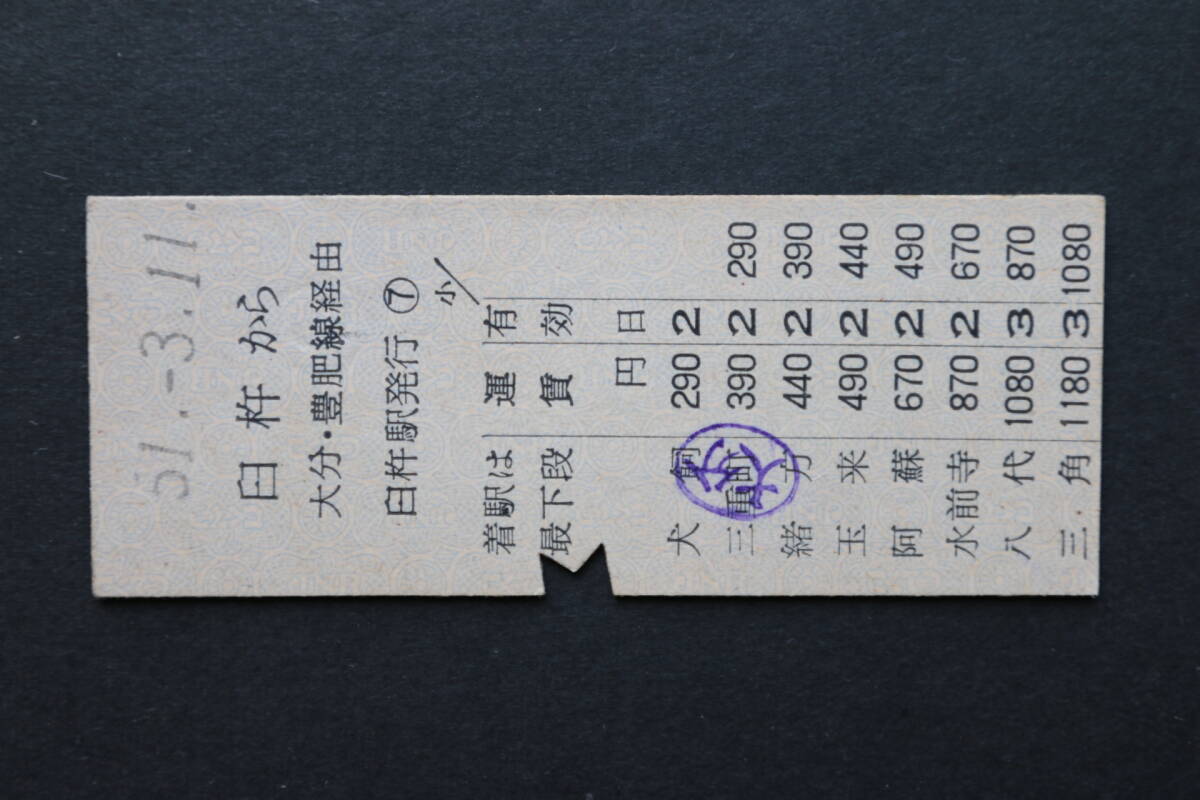 51.-3.11.
臼杵から
大分・豊肥線経由
臼杵駅発行 ⑦
小
着駅は 運 有
最下段 賃 効
円 日
犬飼 290 2
三重町 390 2 290
緒方 440 2 390
玉来 490 2 440
阿蘇 670 2 490
水前寺 870 2 670
八代 1080 3 870
三角 1180 3 1080